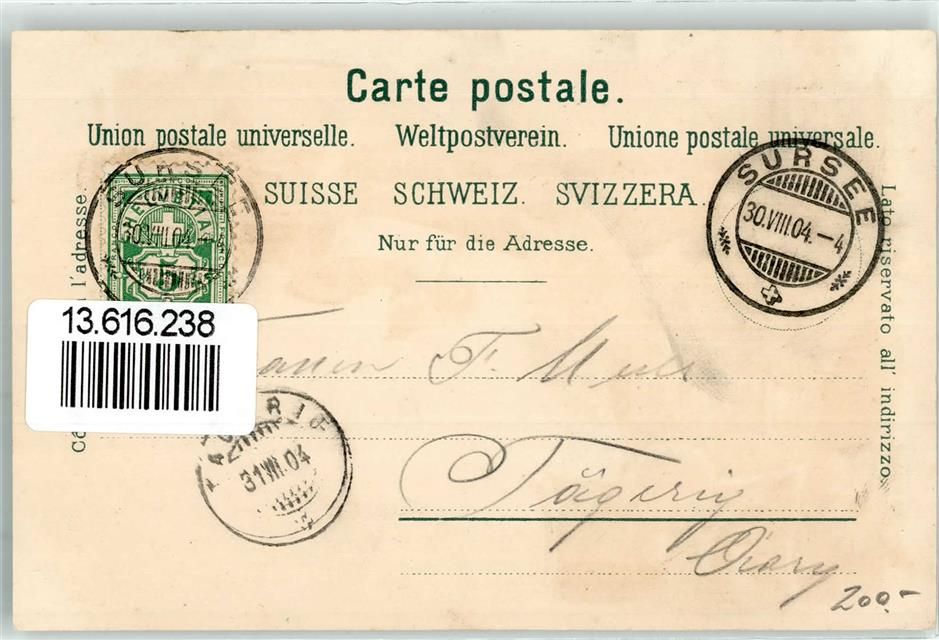 Carte postale.
Union postale universelle. Weltpostverein. Unione postale universale.
SUISSE SCHWEIZ. SVIZZERA.
Nur für die Adresse.
l'adresse.
Lato riservato all' indirizzo.
SURSEE
HELVETIA
30.VIII.04.-4
5
SURSEE
30.VIII.04.-4
13.616.238
F.
Tägerig
31.VIII.04
TÄGERIG
200.-